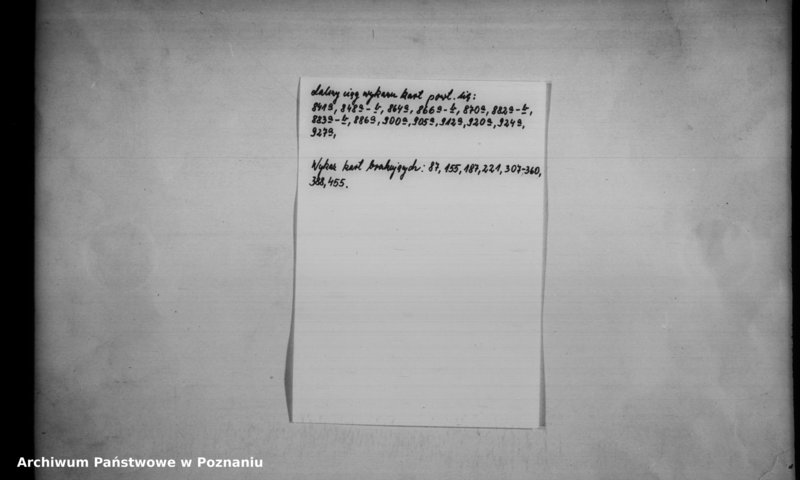 Dalszy ciąg wykazu kart powt. się:
841a, 848a-b, 864a, 866a-b, 870a, 882a-b,
883a-b, 886a, 900a, 905a, 912a, 920a, 924a,
927a,
Wykaz kart brakujących: 87, 155, 187, 221, 307-360,
388, 455.
Archiwum Państwowe w Poznaniu